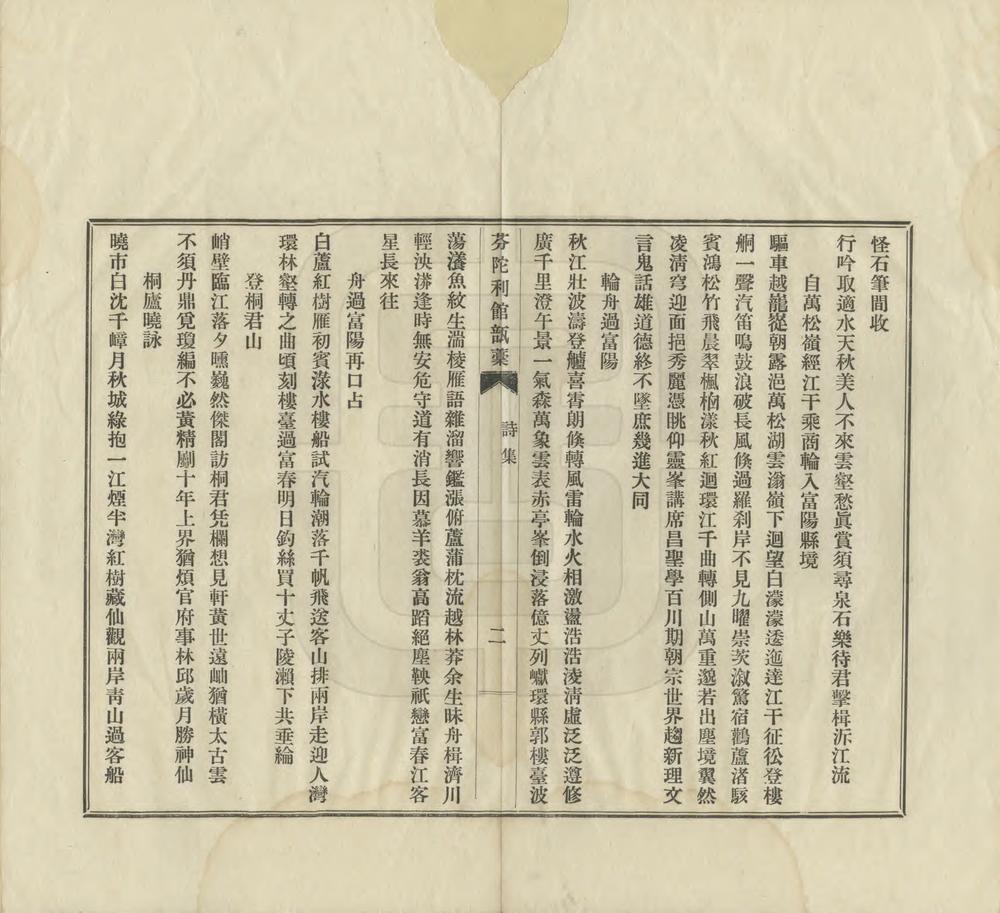 怪石筆間收
行吟取適水天秋美人不來雲壑愁眞賞須尋泉石樂待君擊楫泝江流
自萬松嶺經江干乘商輪入富陽縣境
驅車越巃嵸朝露浥萬松湖雲滃嶺下迴望白濛濛逶迤達江干征彸登樓
舸一聲汽笛鳴鼓浪破長風倏過羅刹岸不見九曜崇茨溆驚宿鸛蘆渚駭
賓鴻松竹飛晨翠楓桕漾秋紅迴環江千曲轉側山萬重邈若出塵境翼然
凌淸穹迎面挹秀麗憑眺仰靈峯講席昌聖學百川期朝宗世界趨新理文
言鬼話雄道德終不墜庶幾進大同
輪舟過富陽
秋江壯波濤登艫喜霽朗倏轉風雷輪水火相激盪浩浩淩淸虛泛泛遵修
廣千里澄午景一氣森萬象雲表赤亭峯倒浸落億丈列巘環縣郭樓臺波
芬陀利館瓿藁
詩集
二
蕩瀁魚紋生湍棱雁語雜溜響鑑漲俯蘆蒲枕流越林莽余生昧舟楫濟川
輕泱漭逢時無安危守道有消長因慕羊裘翁高蹈絕塵鞅祇戀富春江客
星長來往
舟過富陽再口占
白蘆紅樹雁初賓淥水樓船試汽輪潮落千帆飛送客山排兩岸走迎人灣
環林壑轉之曲頃刻樓臺過富春明日釣絲買十丈子陵瀨下共垂綸
登桐君山
峭壁臨江落夕曛巍然傑閣訪桐君凭欄想見軒黃世遠岫猶橫太古雲
不須丹鼎覓瓊編不必黃精劚十年上界猶煩官府事林邱歲月勝神仙
桐廬曉詠
曉市白沈千嶂月秋城綠抱一江煙半灣紅樹藏仙觀兩岸靑山過客船